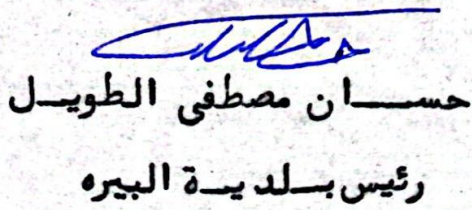 حسان مصطفى الطويل
رئيس بلدية البيره